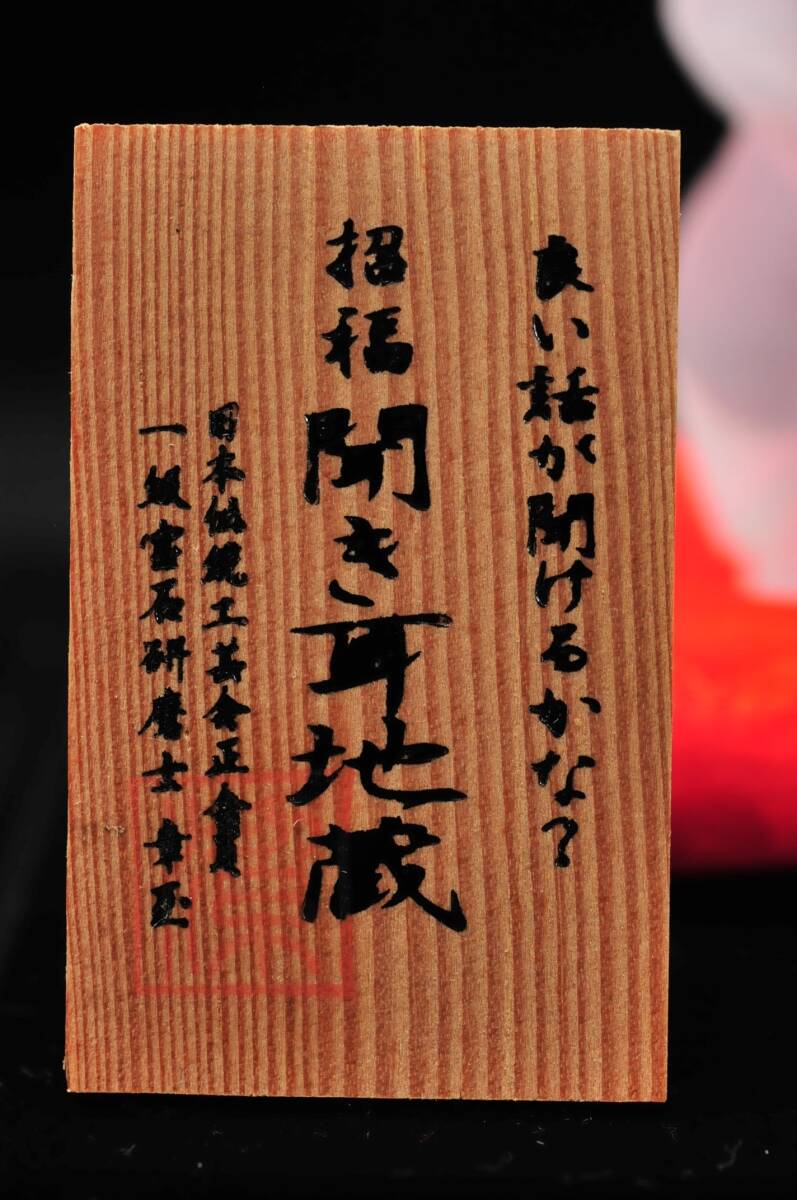 良い話が聞けるかな?
招福 聞き耳地蔵
日本伝統工芸会正会員
一級宝石研磨士 幸玉